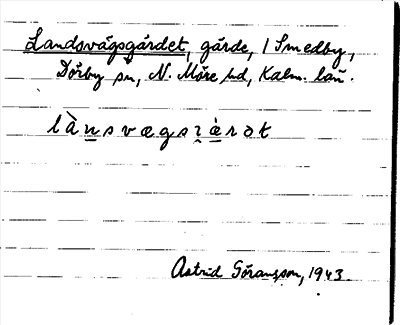 Landsvägsgärdet, gärde, 1 Smedby,
Dörby sn, N. Möre hd, Kalm. län.
là̱nsvægsɿæ̱̀rət
Astrid Göransson, 1943.